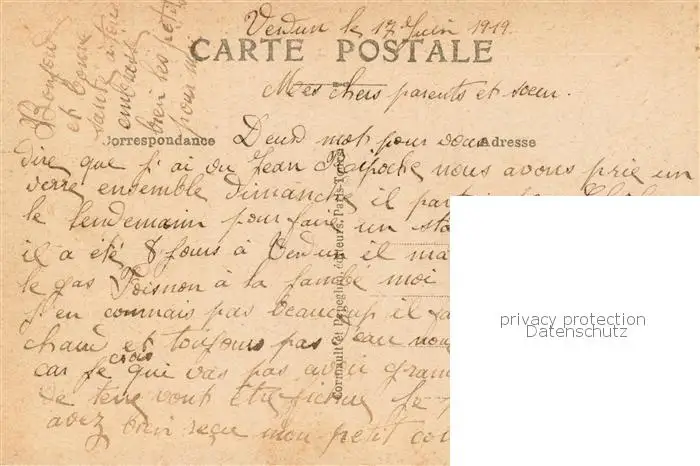 Verdun le 17 Juin 1919.
CARTE POSTALE
Mes chers parents et soeur.
Correspondance
Adresse
Deux mot pour vous
dire que j'ai vu Jean nous avons prie un
verre ensemble dimanche il
le lendemain pour faire un
il a été 8 jours à Verdun il
le gas Poisnon à la jambe moi
j'en connais pas beaucoup il
chaud et toujours pas eau
car je crois que vas pas avoir
de terre vont être fichue
avez bien reçue mon petit
Bonjour
et bonne
santé a tous
embrasse
bien les petit
pour moi
privacy protection
Datenschutz